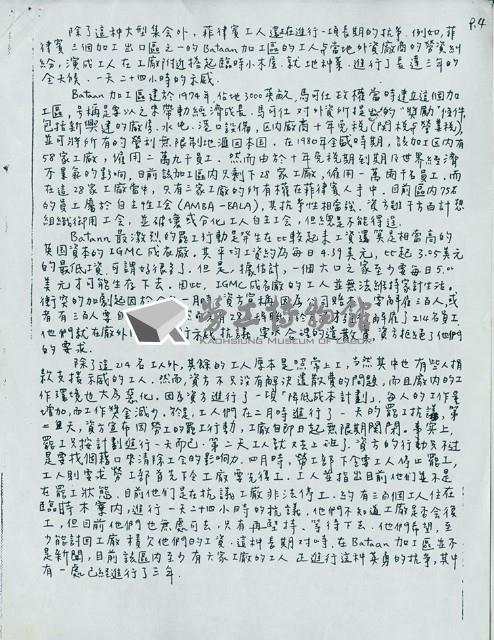 P.4
除了這种大型集会外,菲律賓工人還在進行一項長期的抗爭。例如,菲
律賓三個加工出口區之一的Bataan加工區的工人与當地外資廠商的勞資糾
紛,演成工人在工廠附近搭起臨時小木屋.就地种菜.進行了長達三年的
全天候.一天二十四小時的示威.
Bataan加工區建於1974年,佔地3000英畝.馬可仕政權當時建立這個加
工區,号稱是要以之來帶動經濟成長.馬可仕对外資所提出的"獎勵"條件
包括新興建的廠房、水电.港口設備,區內廠商十年免稅(関稅与營業稅)
並可將所有的營利無限制地滙回本国.在1980年全盛時期,該加工區內有
58家工廠,僱用二萬九千員工.然而由於十年免稅期到期及世界經濟
不景氣的影响,目前該加工區內只剩下28家工廠,僱用一萬兩千名員工.而
在這28家工廠當中,只有三家工廠的所有權在菲律賓人手中.目前區內75%
的員工屬於自主性工会(AMBA-BALA),其抗爭性相當強.資方雖千方百計想
組織御用工会,並破壞或分化工人自主工会,但總是不能得逞.
Bataan最激烈的罷工行動是發生在比較起來工資還算是相當高的
英国資本的IGMC成衣廠.其平均工資約為每日4.39美元,比起3.05美元
的最低工資可謂好很多了.但是,據估計,一個六口之家至少要每日5.00
美元才可能生存下去.因此,IGMC成衣廠的工人並無法維持家計生活.
衝突的加劇起因於今年一月
有
他們就在廠外
的要求.
除了這214名工人外,其餘的工人原本是照常上工,当然其中也有些人捐
款支援示威的工人.然而,資方不只沒有解決遣散費的問題,而且廠內的工
作環境也大為惡化.因為資方進行了一項「降低成本計劃」,每人的工作量
增加,而工作獎金減少.於是,工人們在二月時進行了一天的罷工抗議.第
二天,資方宣布因勞工的罷工行動,工廠自即日起無限期関閉.事实上,
罷工只按計劃進行一天而已.第二天工人就又去上班了.資方的行動只不过
是要找個藉口來清除工会的影响力.四月時,勞工部下令要工人停止罷工,
工人則要求勞工部首先下令工廠要先復工.工人並指出目前他們並不是
在罷工狀態.目前他們是在抗議工廠非法停工.約有三百個工人住在
臨時木寮內,進行一天二十四小時的抗議,他們不知道工廠是否会復
工,但目前他們也無處可去,只有再堅持、等待下去.他們希望,至
少能討回工廠積欠他們的工資.這种長期对峙.在Bataan加工區並不
是新聞,目前該區內至少有六家工廠的工人正進行這种英勇的抗爭,其中
有一處已經進行了三年.
勞工博物館
KAOHSIUNG MUSEUM OF LABOR